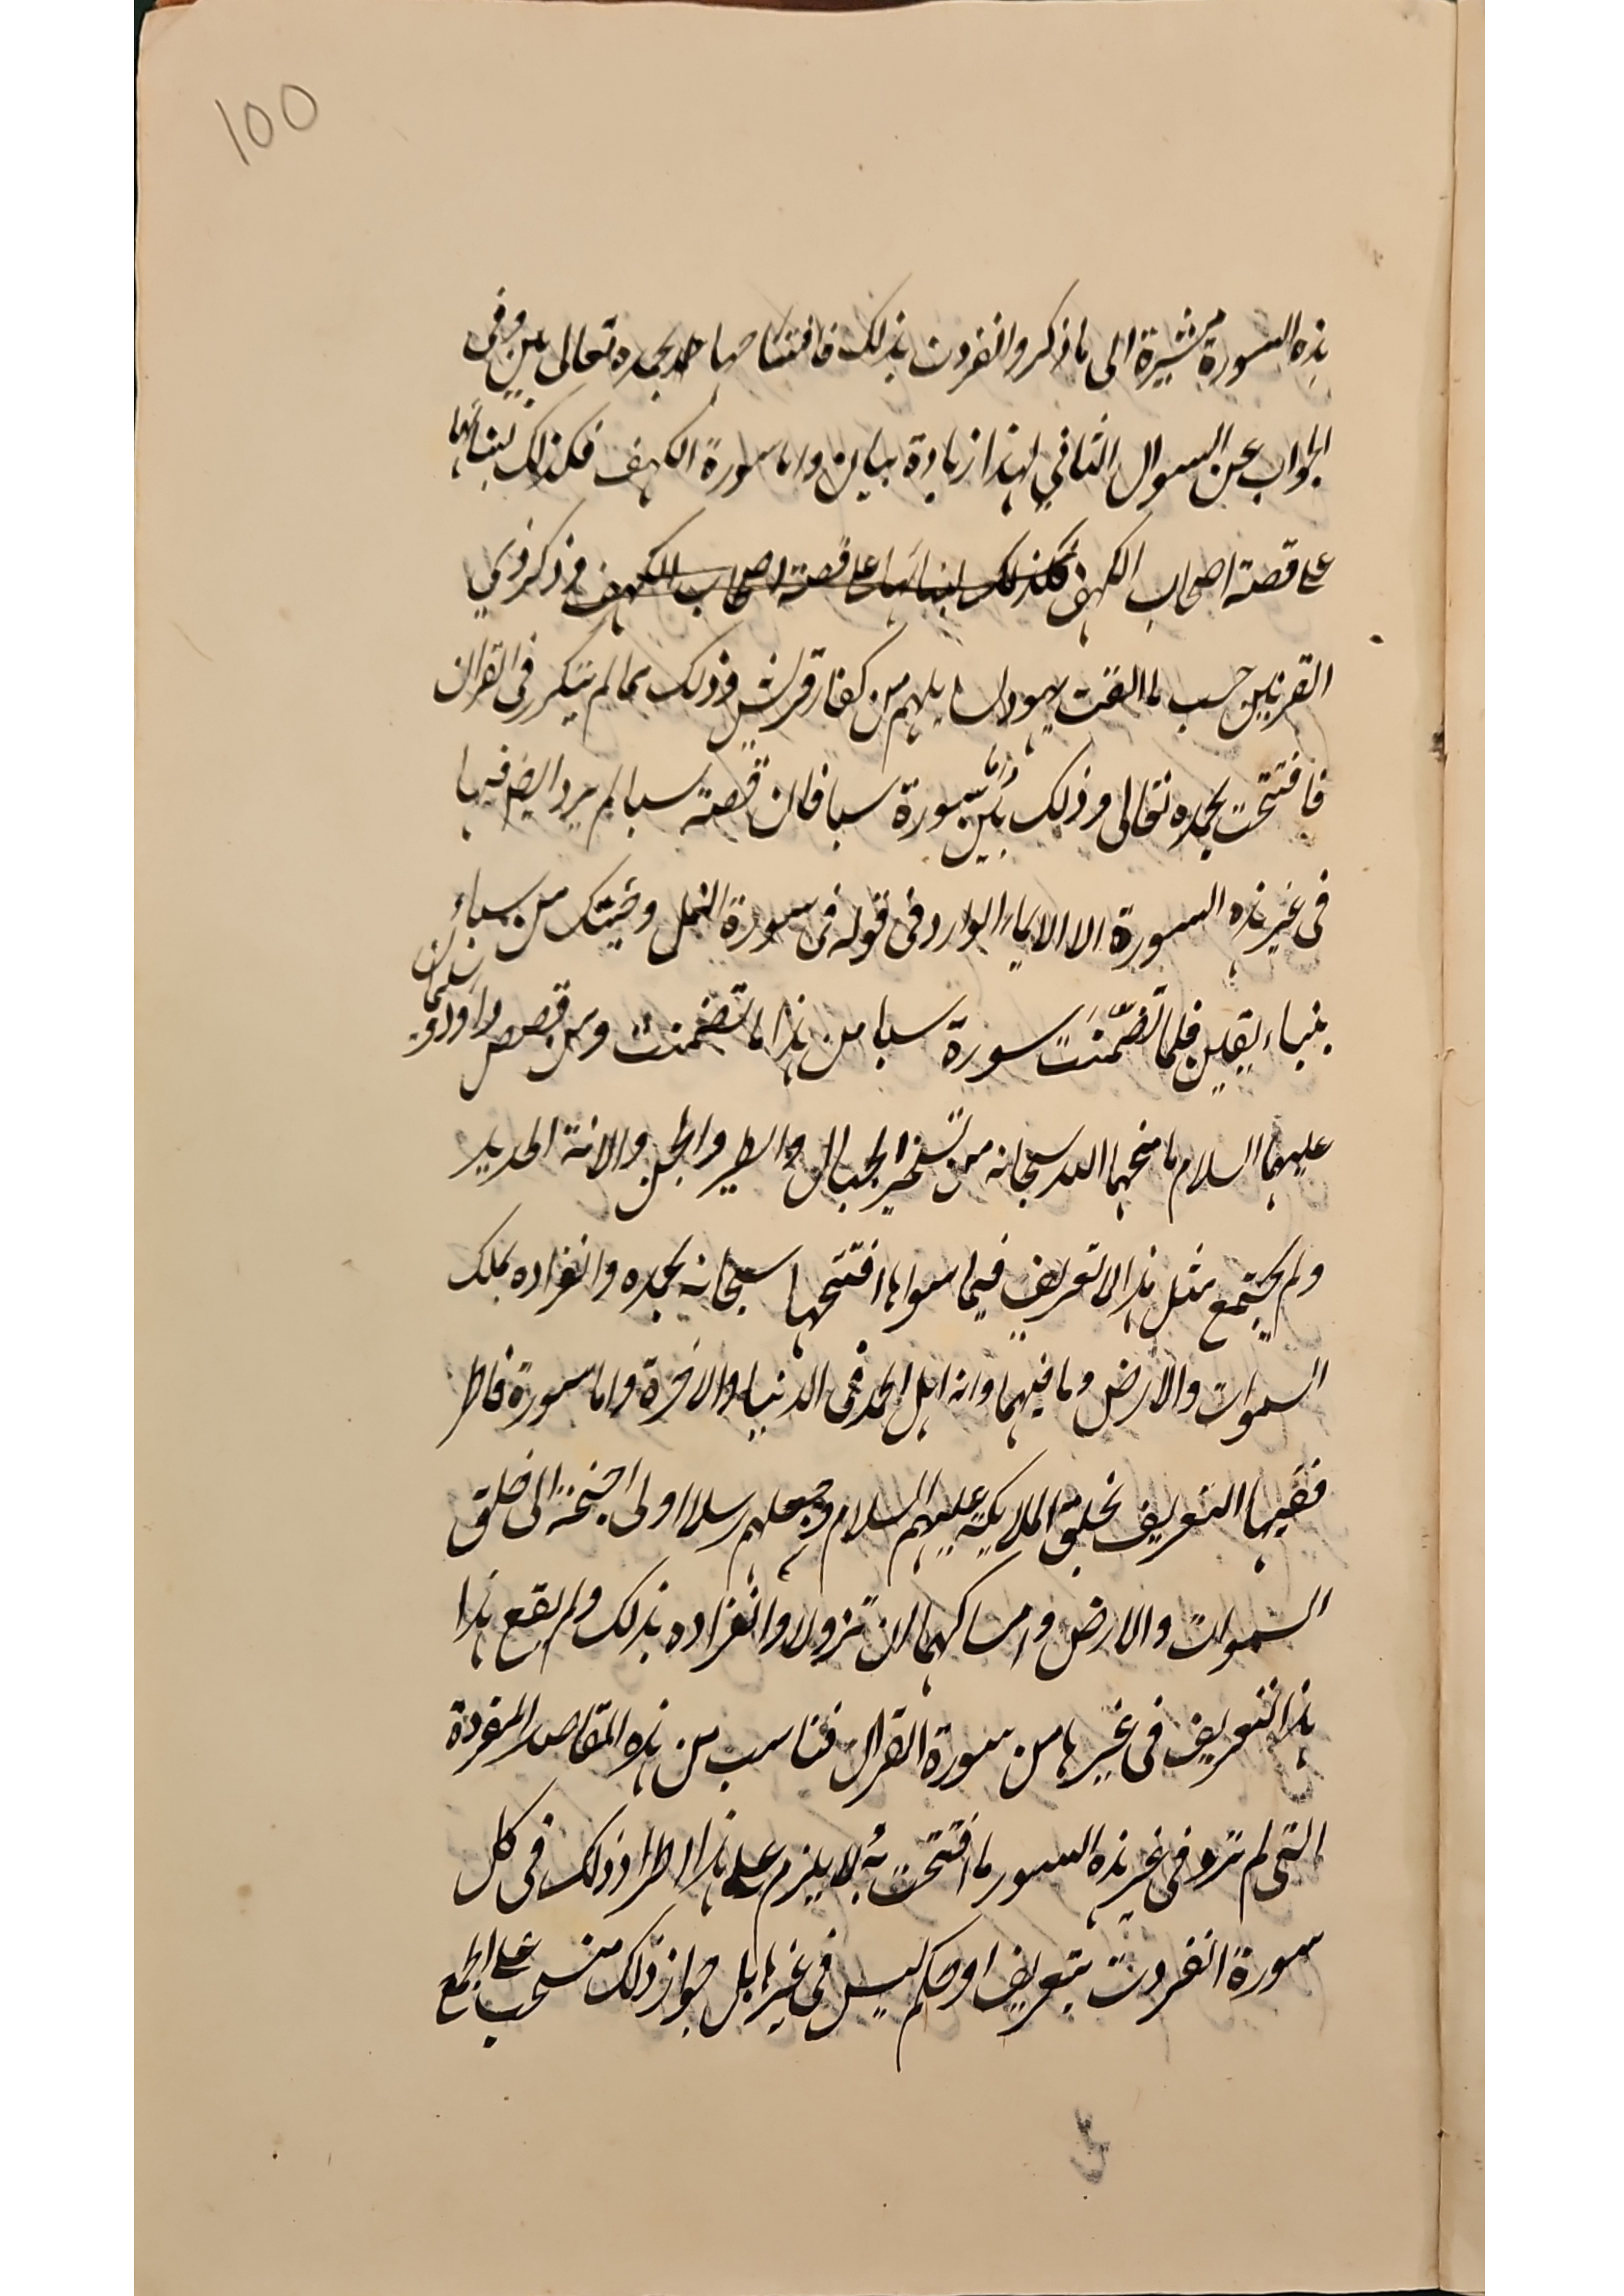 100
هذه السورة مشيرة الى ما ذكر وانفردت بذلك فافتتاحها بحمده تعالى بين وفى
الجواب عن السوال الثاني لهذا زيادة بيان واما سورة الكهف فكذلك لبنائها
على قصة اصحاب الكهف فكذلك لبنائها على قصة اصحاب الكهف وذكر ذي
القرنين حسب ما الفت يهود الى من كفار قريش وذلك مما لم يتكرر فى القران
فافتتحت بحمده تعالى وذلك بين واما سورة سبا فان قصة سبا لم يرد ايضا فيها
فى غير هذه السورة الا الايماء الوارد فى قوله فى سورة النمل وجئتك من سباء
بنباء يقين فلما تضمنت سورة سبا من هذا ما تضمنت ومن قصص داود و سليمان
عليهما السلام ما منحهما الله سبحانه من تسخير الجبال والطير والجن والانة الحديد
ولم يجتمع مثل هذا التعريف فيما سواها افتتحها سبحانه بحمده وانفراده بملك
السموات والارض وما فيهما وانه اهل الحمد فى الدنيا والاخرة واما سورة فاطر
ففيها التعريف بخلق الملايكة عليهم السلام وجعلهم رسلا اولى اجنحة الى خلق
السموات والارض وامساكهما ان تزولا وانفراده بذلك ولم يقع هذا
هذا التعريف فى غيرها من سورة القران فناسب من هذه المقاصد المنفردة
التى لم ترد فى غير هذه السور ما افتتحت به ولا يلزم على هذا اطراد ذلك فى كل
سورة انفردت بتعريف او حكم ليس فى غيرها بل جواز ذلك منسحب على الجمع